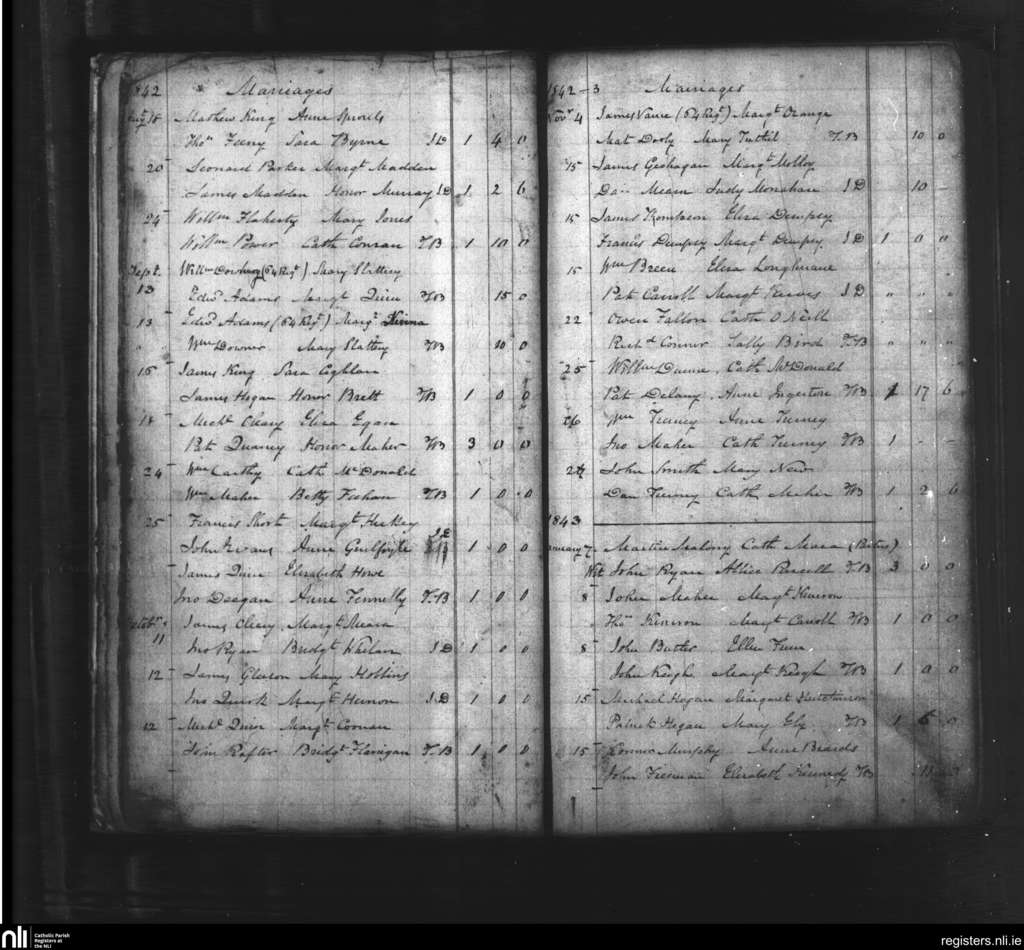 1842 Marriages
Augt 18 Mathew King Anne Sproule
Thos Feeny Sara Byrne J D 1 4 0
20 Leonard Parker Margt Madden
James Madden Honor Murray J D 1 2 6
24 Willm Flaherty Mary Jones
Willm Power Cath Conran T B 1 10 0
Sept. Willm (64 Regt) Mary Slattery
13 Edwd Adams Margt Quin T B 15 0
13 Edwd Adams (64 Regt) Margt
" Wm Downer Mary Slattery T B 10 0
15 James King Sara Coghlan
James Hogan Honor Brett T B 1 0 0
Michl Cleary Eliza Egan
Pat Honor Maher T B 3 0 0
24 Wm Carthy Cath McDonald
Wm Maher Betty T B 1 0 0
25 Francis Short Margt Hickey
John Evans Anne Guilfoyle J D 1 0 0
James Quin Elizabeth Howe
Jno Deegan Anne Fennelly T B 1 0 0
Octobr James Cleary Margt Meara
11 Jno Ryan Bridgt Whelan J D 1 0 0
12 James Gleeson Mary Hobbins
Jno Quirk Margt J D 1 0 0
12 Michl Quin Margt
John Rafter Bridgt Flanigan T B 1 0 0
1842–3 Marriages
Novr 4 James (64 Regt) Margt Orange
Mat Dooly Mary Tuthil T B 10 0
15 James Geohagan Margt Molloy
Danl Meara Judy Monahan J D 10 –
15 James Thompson Eliza Dempsey
Francis Dempsey Margt Dempsey J D 1 0 0
15 Wm Breen Eliza Loughnane
Pat Carroll Margt J D " " "
22 Owen Fallon Cath O'Neill
Richd Connor Sally Bird T B " " "
25 Willm Dunne Cath McDonald
Pat Delany Anne T B 1 17 6
26 Wm Tierney Anne Tierney
Jno Maher Cath Tierney T B 1 – –
John Smith Mary New
Dan Tierney Cath Maher T B 1 2 6
1843
January 7 Martin Cath Mara
Wit John Ryan Allice Purcell T B 3 0 0
8 John Maher Margt
Thos Margt Carroll T B 1 0 0
8 John Butler Ellen
John Keogh Margt Keogh T B 1 0 0
15 Michael Hogan Margaret Hutchinson
Patrick Hogan Mary Ely T B 1 0
15 Connor Murphy Anne
John Freeman Elizabeth Kennedy T B
nli
Catholic Parish
Registers at
the NLI
registers.nli.ie